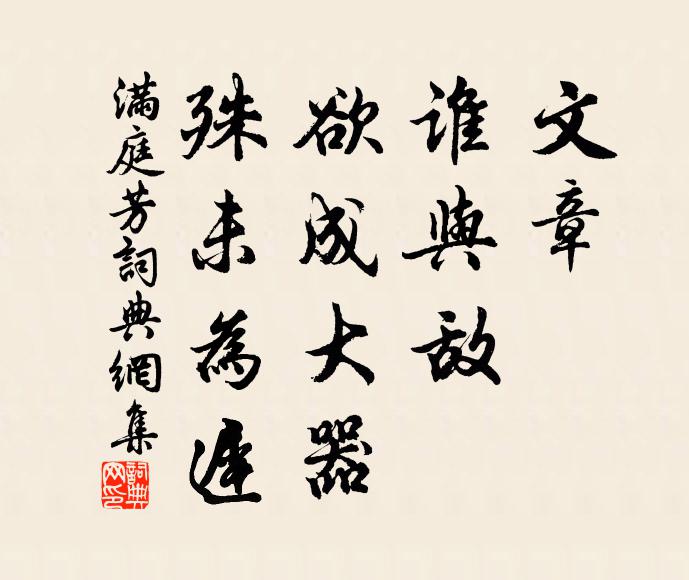 文章
誰與敌
欲成大器
殊未為遲
滿庭芳詞典網集
詞典
网印